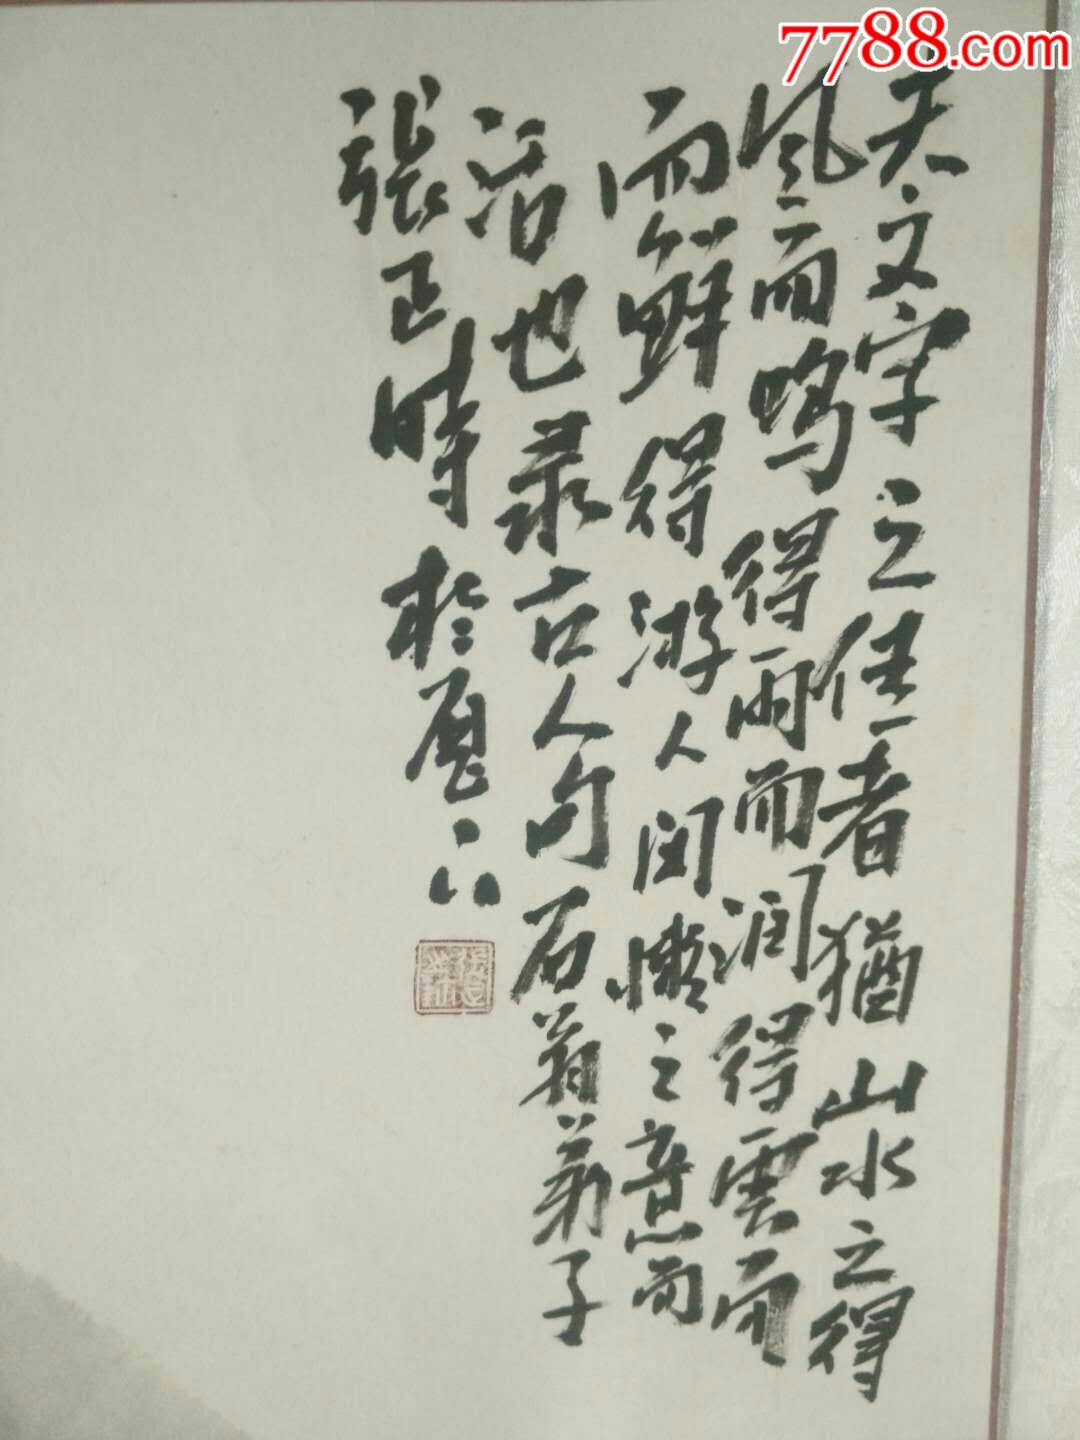 7788.com
天文字之佳者猶山水之得
風而鸣得雨而润得雲而
而鲜得游人闲懒之意而
活也录古人句石翁弟子
張正時於